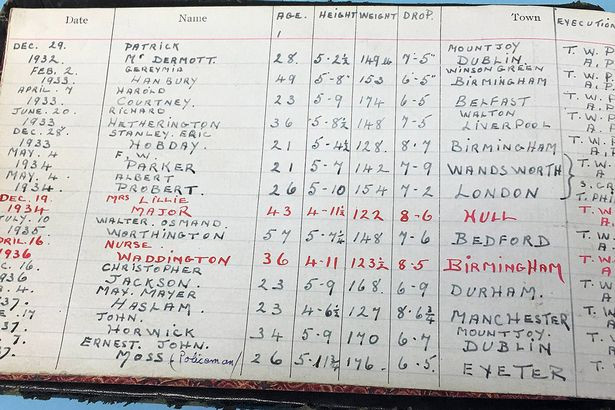 Date Name AGE. HEIGHT WEIGHT DROP. Town EXECUTION
DEC. 29. PATRICK MOUNTJOY T. W. P
1932. Mc DERMOTT. 28. 5-2½ 149¼ 7-5" DUBLIN. A. P.
FEB. 2. GEREYMIA WINSON GREEN T. W. P
1933. HANBURY 49 5-8" 153 6-5" BIRMINGHAM
APRIL. 7 HAROLD
1933. COURTNEY. 23 5-9 174 6-5 BELFAST
JUNE. 20. RICHARD. WALTON
1933. HETHERINGTON 36 5-8½ 148 7-5 LIVERPOOL
DEC. 28 STANLEY. ERIC
1933 HOBDAY. 21 5-4½ 128. 8-7 BIRMINGHAM
MAY. 4 F. W.
1934 PARKER 21 5-7 142 7-9 WANDSWORTH
MAY. 4. ALBERT
1934. PROBERT. 26 5-10 154 7-2 LONDON
DEC. 19. MRS LILLIE
1934 MAJOR 43 4-11½ 122 8-6 HULL T. W.
JULY. 10 WALTER. OSMAND.
1935 WORTHINGTON 57 5-7¼ 148 7-6 BEDFORD
APRIL. 16. NURSE..
1936 WADDINGTON 36 4-11 123½ 8.5 BIRMINGHAM
C. 16. CHRISTOPHER
JACKSON. 23 5-9 168 6-9 DURHAM.
MAX. MAYER
37. HASLAM. 23 4-6½ 127 8.6¾ MANCHESTER
JOHN. MOUNTJOY.
37. HORWICK 34 5-9 170 6-7 DUBLIN
ERNEST. JOHN.
MOSS (Policeman) 26 5-11½ 176. 6-5 EXETER